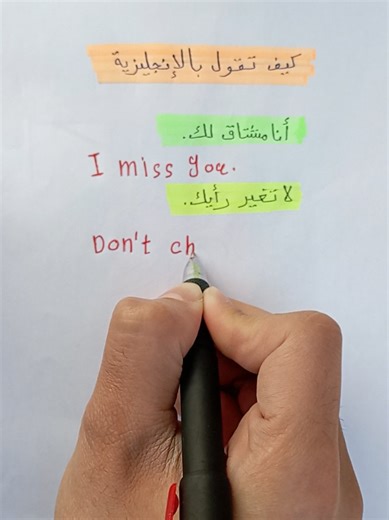 كيف تقول بالإنجليزية
أنا مشتاق لك.
I miss you.
لا تغير رأيك.
Don't ch